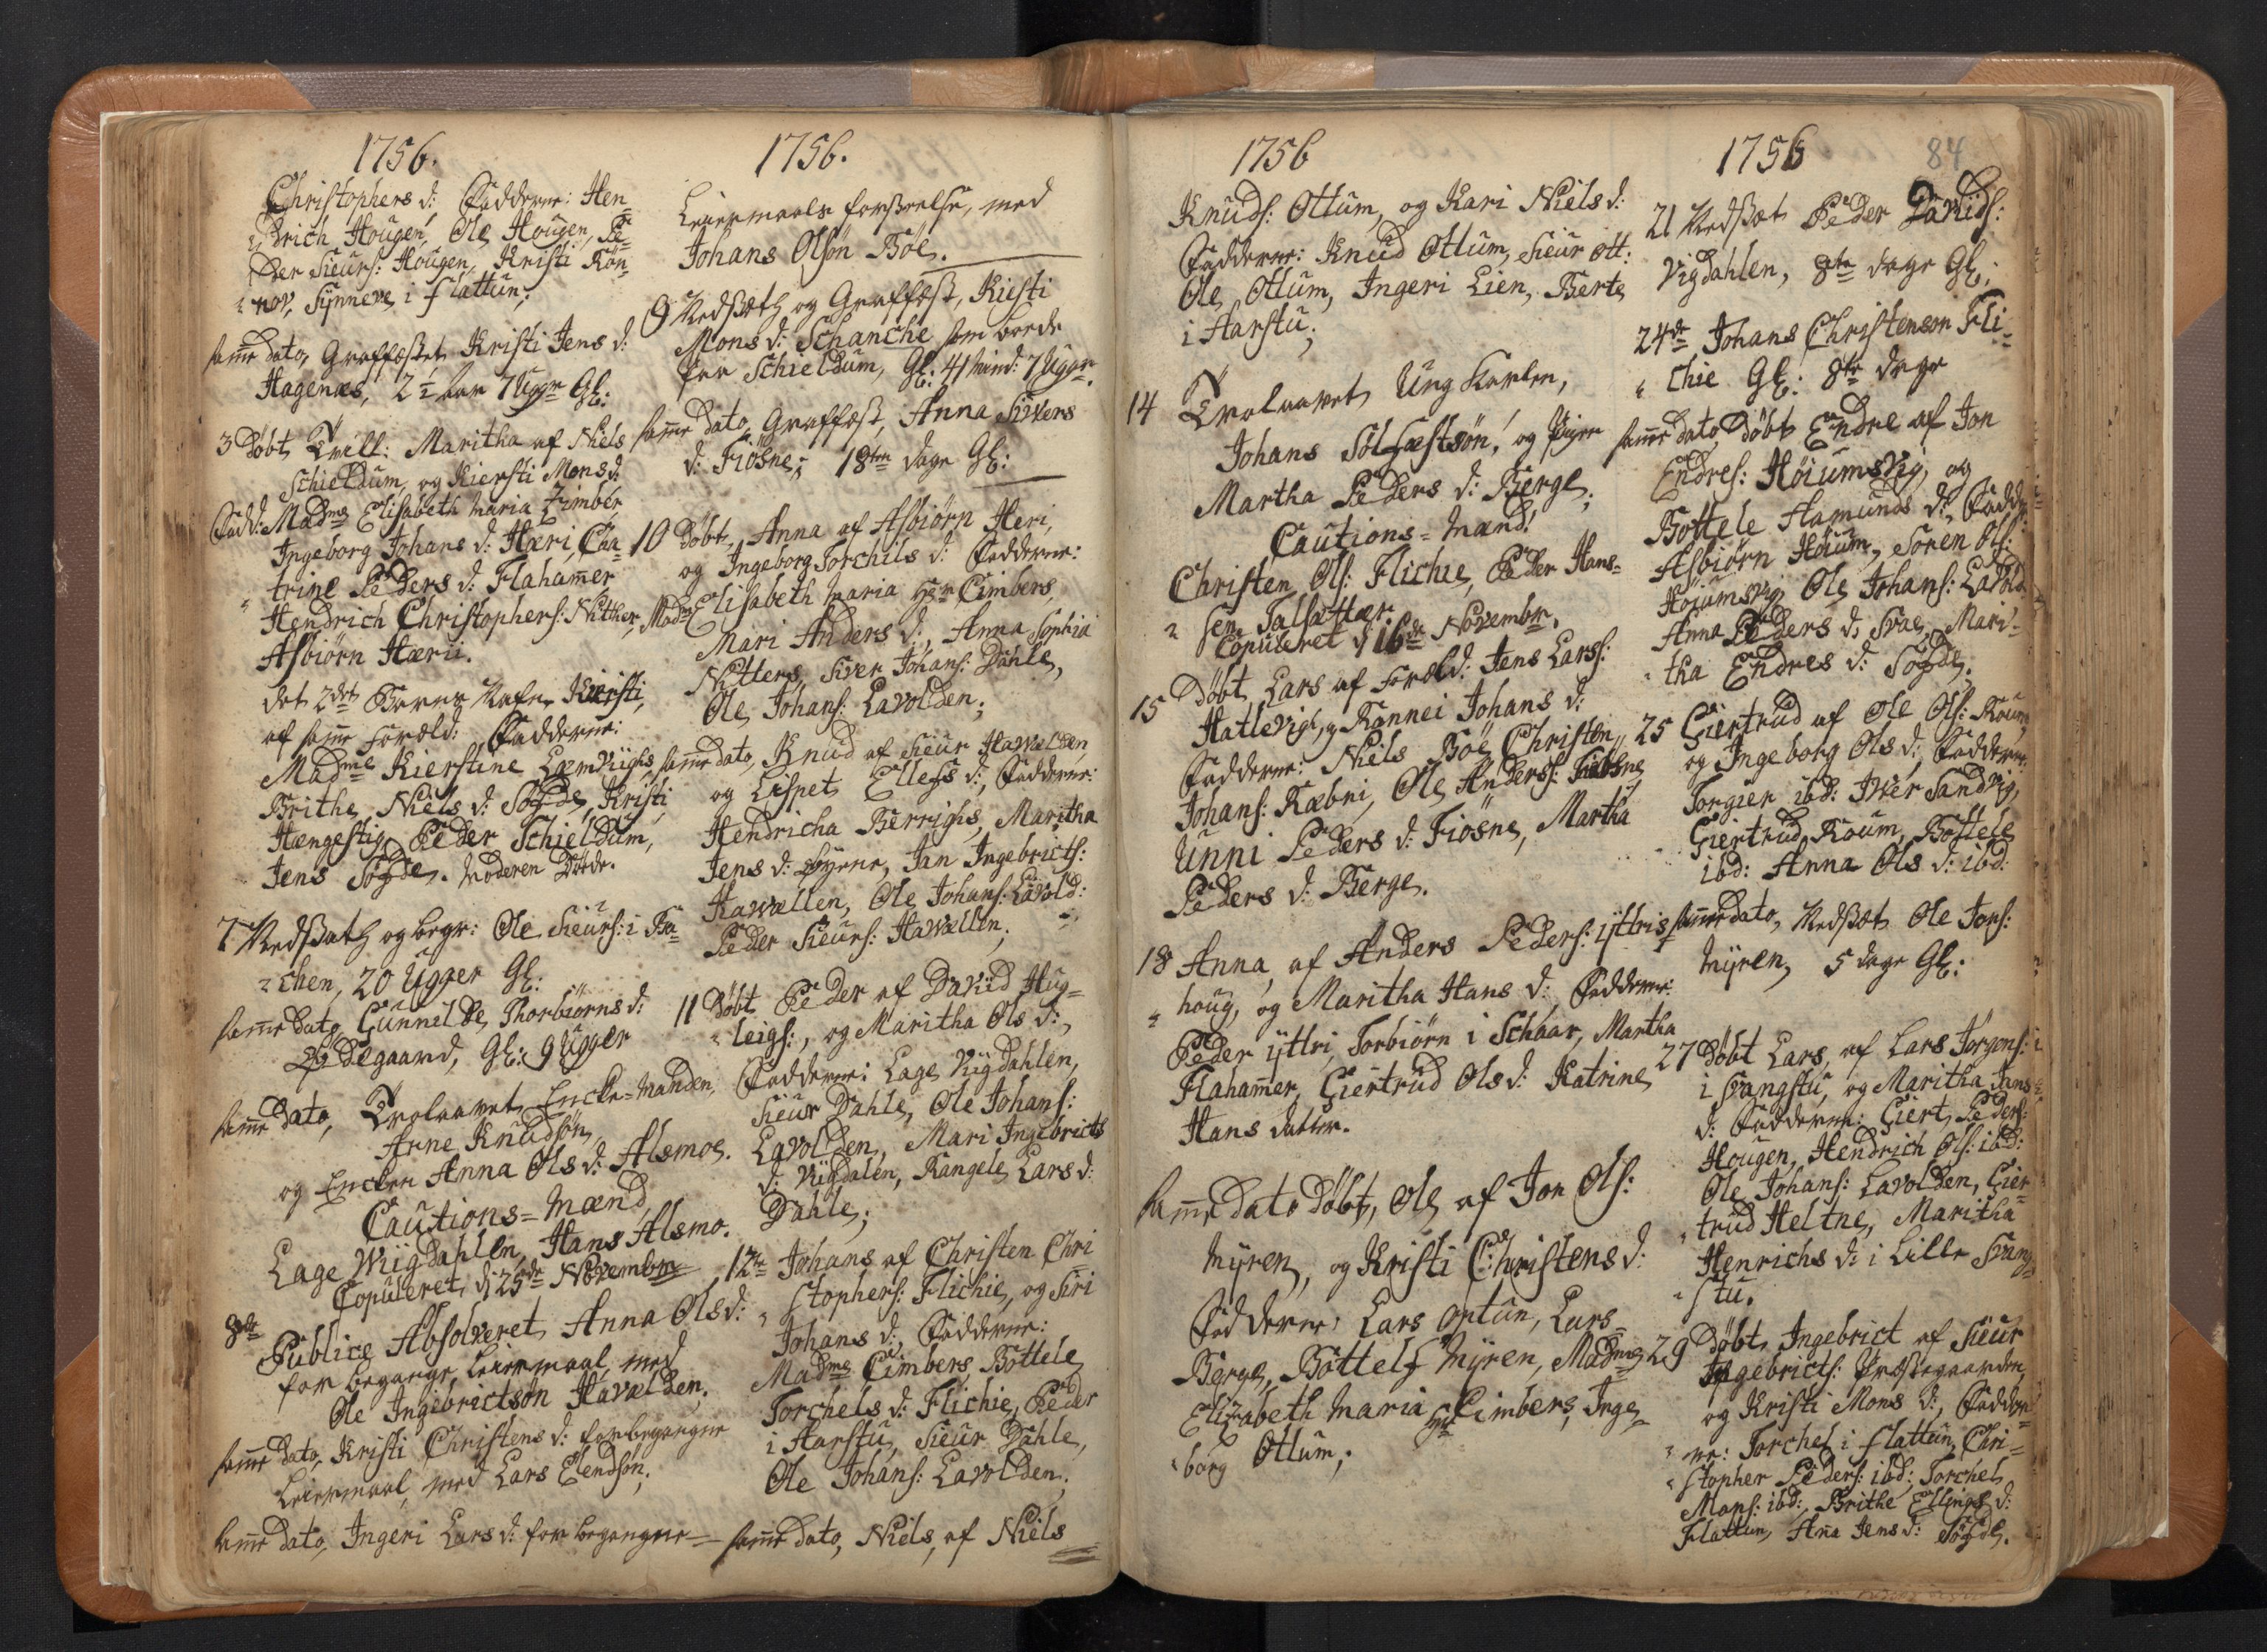 1756.
Christophers d: Faddere: Hen=
drich Hougen, Ole Hougen, Pe=
der Sieurs: Hougen, Kristi Kon=
nov, Synneve i flattun;
samme dato, Graffæstet Kristi Jens d:
Hagenæs, 2½ aar 7 Ugger Gl:
3 Døbt Tvill: Maritha af Niels
Schieldum, og Kiersti Mons d:
Fadd: Madme Elisabeth Maria Zimber,
Ingeborg Johans d: Hæri, Caa=
trine Peders d: Flahammer
Hendrich Christophers: Nitther,
Asbiørn Hærii.
det 2det Barns Nafn Kiersti,
af samme Foræld: Faddere:
Madme Kierstine Lemvighs,
Brithe Niels d: Sogde, Kristi
Hængestig, Peder Schieldum,
Jens Sogde. Moderen Døde.
7 Nedsath og begr: Ole Sieurs: i Ba=
chen, 20 Ugger Gl:
samme dato Gunnilde Thorbiørns d:
Ødegaard, Gl: 9 Ugger
samme dato, Trolaavet Encke=Manden
Arne Knudsøn
og Encken Anna Ols d: Alsmoe.
Cautions=Mænd
Lage Wiigdahlen, Hans Alsmo.
Copuleret, d 25de Novembr
8de
Publice Absolveret Anna Ols d:
for begange Leiermaal med
Ole Ingebrictsøn Havælden.
samme dato, Kristi Christens d: for begangne
Leiermaal, med Lars Elendsøn;
samme dato, Ingeri Lars d: for begangne
1756.
Leiermaals forseelse, med
Johans Olsøn Bøe.
9 Nedsath og Graffæst, Kiesti
Mons d: Schanche som boede
paa Schieldum, Gl: 41 Aar: 7 Ugger.
samme dato, Graffæst, Anna Sivers
d: Fiøsne; 18ten dage Gl:
10 Døbt, Anna af Asbiørn Heri,
og Ingeborg Torchils d: Faddere:
Madme Elisabeth Maria Cimbers,
Mari Anders d:, Anna Sophia
Nitters, Siver Johans: Dahle,
Ole Johans: Lavolden;
samme dato, Knud af Sieur Hawælden
og Lispet Ellefs d:, Faddere:
Hendricha Berrighs, Maritha
Jens d: Myren, Jan Ingebricts:
Hawællen, Ole Johans: Lavold:
Peder Sieurs: Hawællen;
11 Døbt Peder af David Hug=
leigs:, og Maritha Ols d:,
Faddere: Lage Viigdahlen,
Sieur Dahle, Ole Johans:
Lavolden, Mari Ingebricts
d: Viigdalen, Rangele Lars d:
Dahle;
12te Johans af Christen Chri
stophers: Flichie, og Siri
Johans d:, Faddere:
Madme Cimbers, Bottele
Torchels d: Flichie, Peder
i Aarstu, Sieur Dahle,
Ole Johans: Lavolden;
samme dato, Niels, af Niels
1756
Knuds: Ottum, og Kari Niels d:
Faddere: Knud Ottum, Sieur Ott:
Ole Ottum, Ingeri Lien, Berte
i Aarstu;
14 Trolaavet Ung Karlen,
Johans Solfæstsøn! og Pigen
Martha Peders d: Berge;
Cautions=Mænd!
Christen Ols: Flichie, Peder Hans=
sen Talsætter.
Copuleret d 16de Novembr.
15 Døbt Lars af Foræld: Jens Lars:
Hatlevigh, og Rannei Johans d:
Faddere: Niels Bøe, Christen
Johans: Ræbni, Ole Anders: Fiøsne,
Unni Peders d: Fiøsne, Martha
Peders d: Berge.
18 Anna af Anders Peders: ijttris=
houg, og Maritha Hans d: Faddere:
Peder ijttri, Torbiørn i Schaar, Martha
Flahammer, Giertrud Ols d: Katrine
Hans datter.
samme dato Døbt, Ole af Jon Ols:
Myren, og Kristi Christens d:
Faddere: Lars optun, Lars
Berge, Bottele Myren, Madme
Elizabeth Maria Cimbers, Inge=
borg Ottum;
1756
84
21 Nedsæt Peder Davids:
Vigdahlen, 8te dage Gl:
24de Johans Christensøn Fli=
chie Gl: 8te dage
samme dato Døbt Endre af Jon
Endres: Høiumsvig, og
Bottele Aamunds d:, Fadde:
Asbiørn Høium, Søren Ols:
Høiumsvig, Ole Johans: Lavold
Anna Peders d: Svae, Mari=
tha Endres d: Sogde.
25 Giertrud af Ole Ols: Roum
og Ingeborg Ols d:, Faddere:
Torgier ibd: Iwer Sandvig,
Giertrud Roum, Bottele
ibd: Anna Ols d: ibd:
samme dato, Nedsæt Ole Jons:
Myren, 5 dage Gl:
27 Døbt Lars, af Lars Jørgens:
i Svangstu, og Maritha Jans
d: Faddere: Giert Peders:
Hougen, Hendrich Ols: ibd:
Ole Johans: Lavolden, Gier
trud Heltne, Maritha
Henrichs d: i Lille Svang
stu.
29 Døbt, Ingebrict af Sieur
Ingebricts: Præstegaarden,
og Kristi Mons d:, Fadde
re: Torchel i flattun, Chri=
stopher Peders: ibd: Torchel
Mons: ibd:, Brithe Ellings d:
Flattun, Anna Jens d: Sogde.